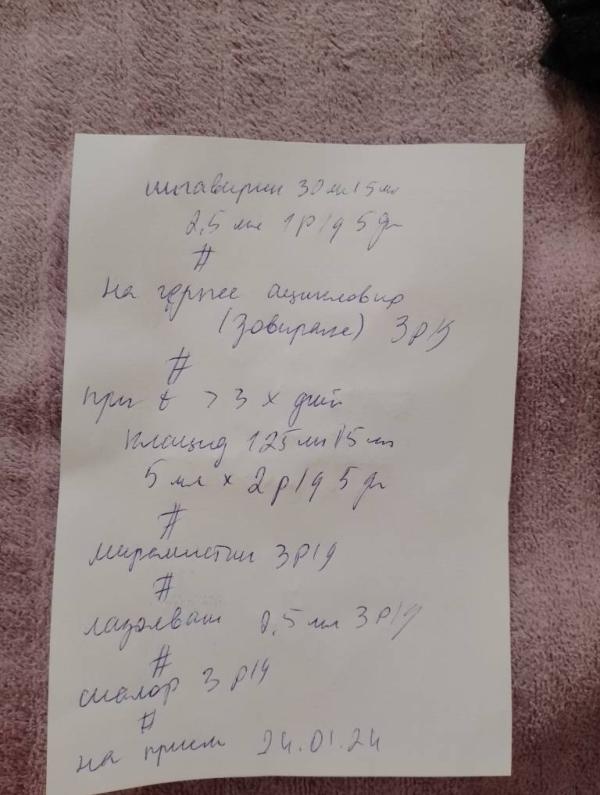 ингавирин 30 мл/5 мл
2,5 мл 1 р/д 5 дн
#
на герпес ацикловир
(зовиракс) 3 р/д
#
при t > 3 х дней
клацид 125 мл/5 мл
5 мл х 2 р/д 5 дн
#
мирамистин 3 р/д
#
лазолван 2,5 мл 3 р/д
#
сиалор 3 р/д
#
на прием 24.01.24